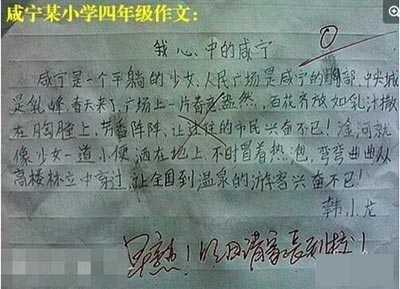 咸宁某小学四年级作文：
我心中的咸宁
咸宁是一个平躺的少女，人民广场是咸宁的胸部，中央城
是乳峰，春天来了，广场上一片春意盎然，百花齐放如乳汁撒
在胸膛上，芳香阵阵，让过往的市民兴奋不已！淦河就
像少女一道小便洒在地上，不时冒着热泡，弯弯曲曲从
高楼林立中穿过，让全国到温泉的游客兴奋不已！
韩小龙
早熟！明日请家长到校！